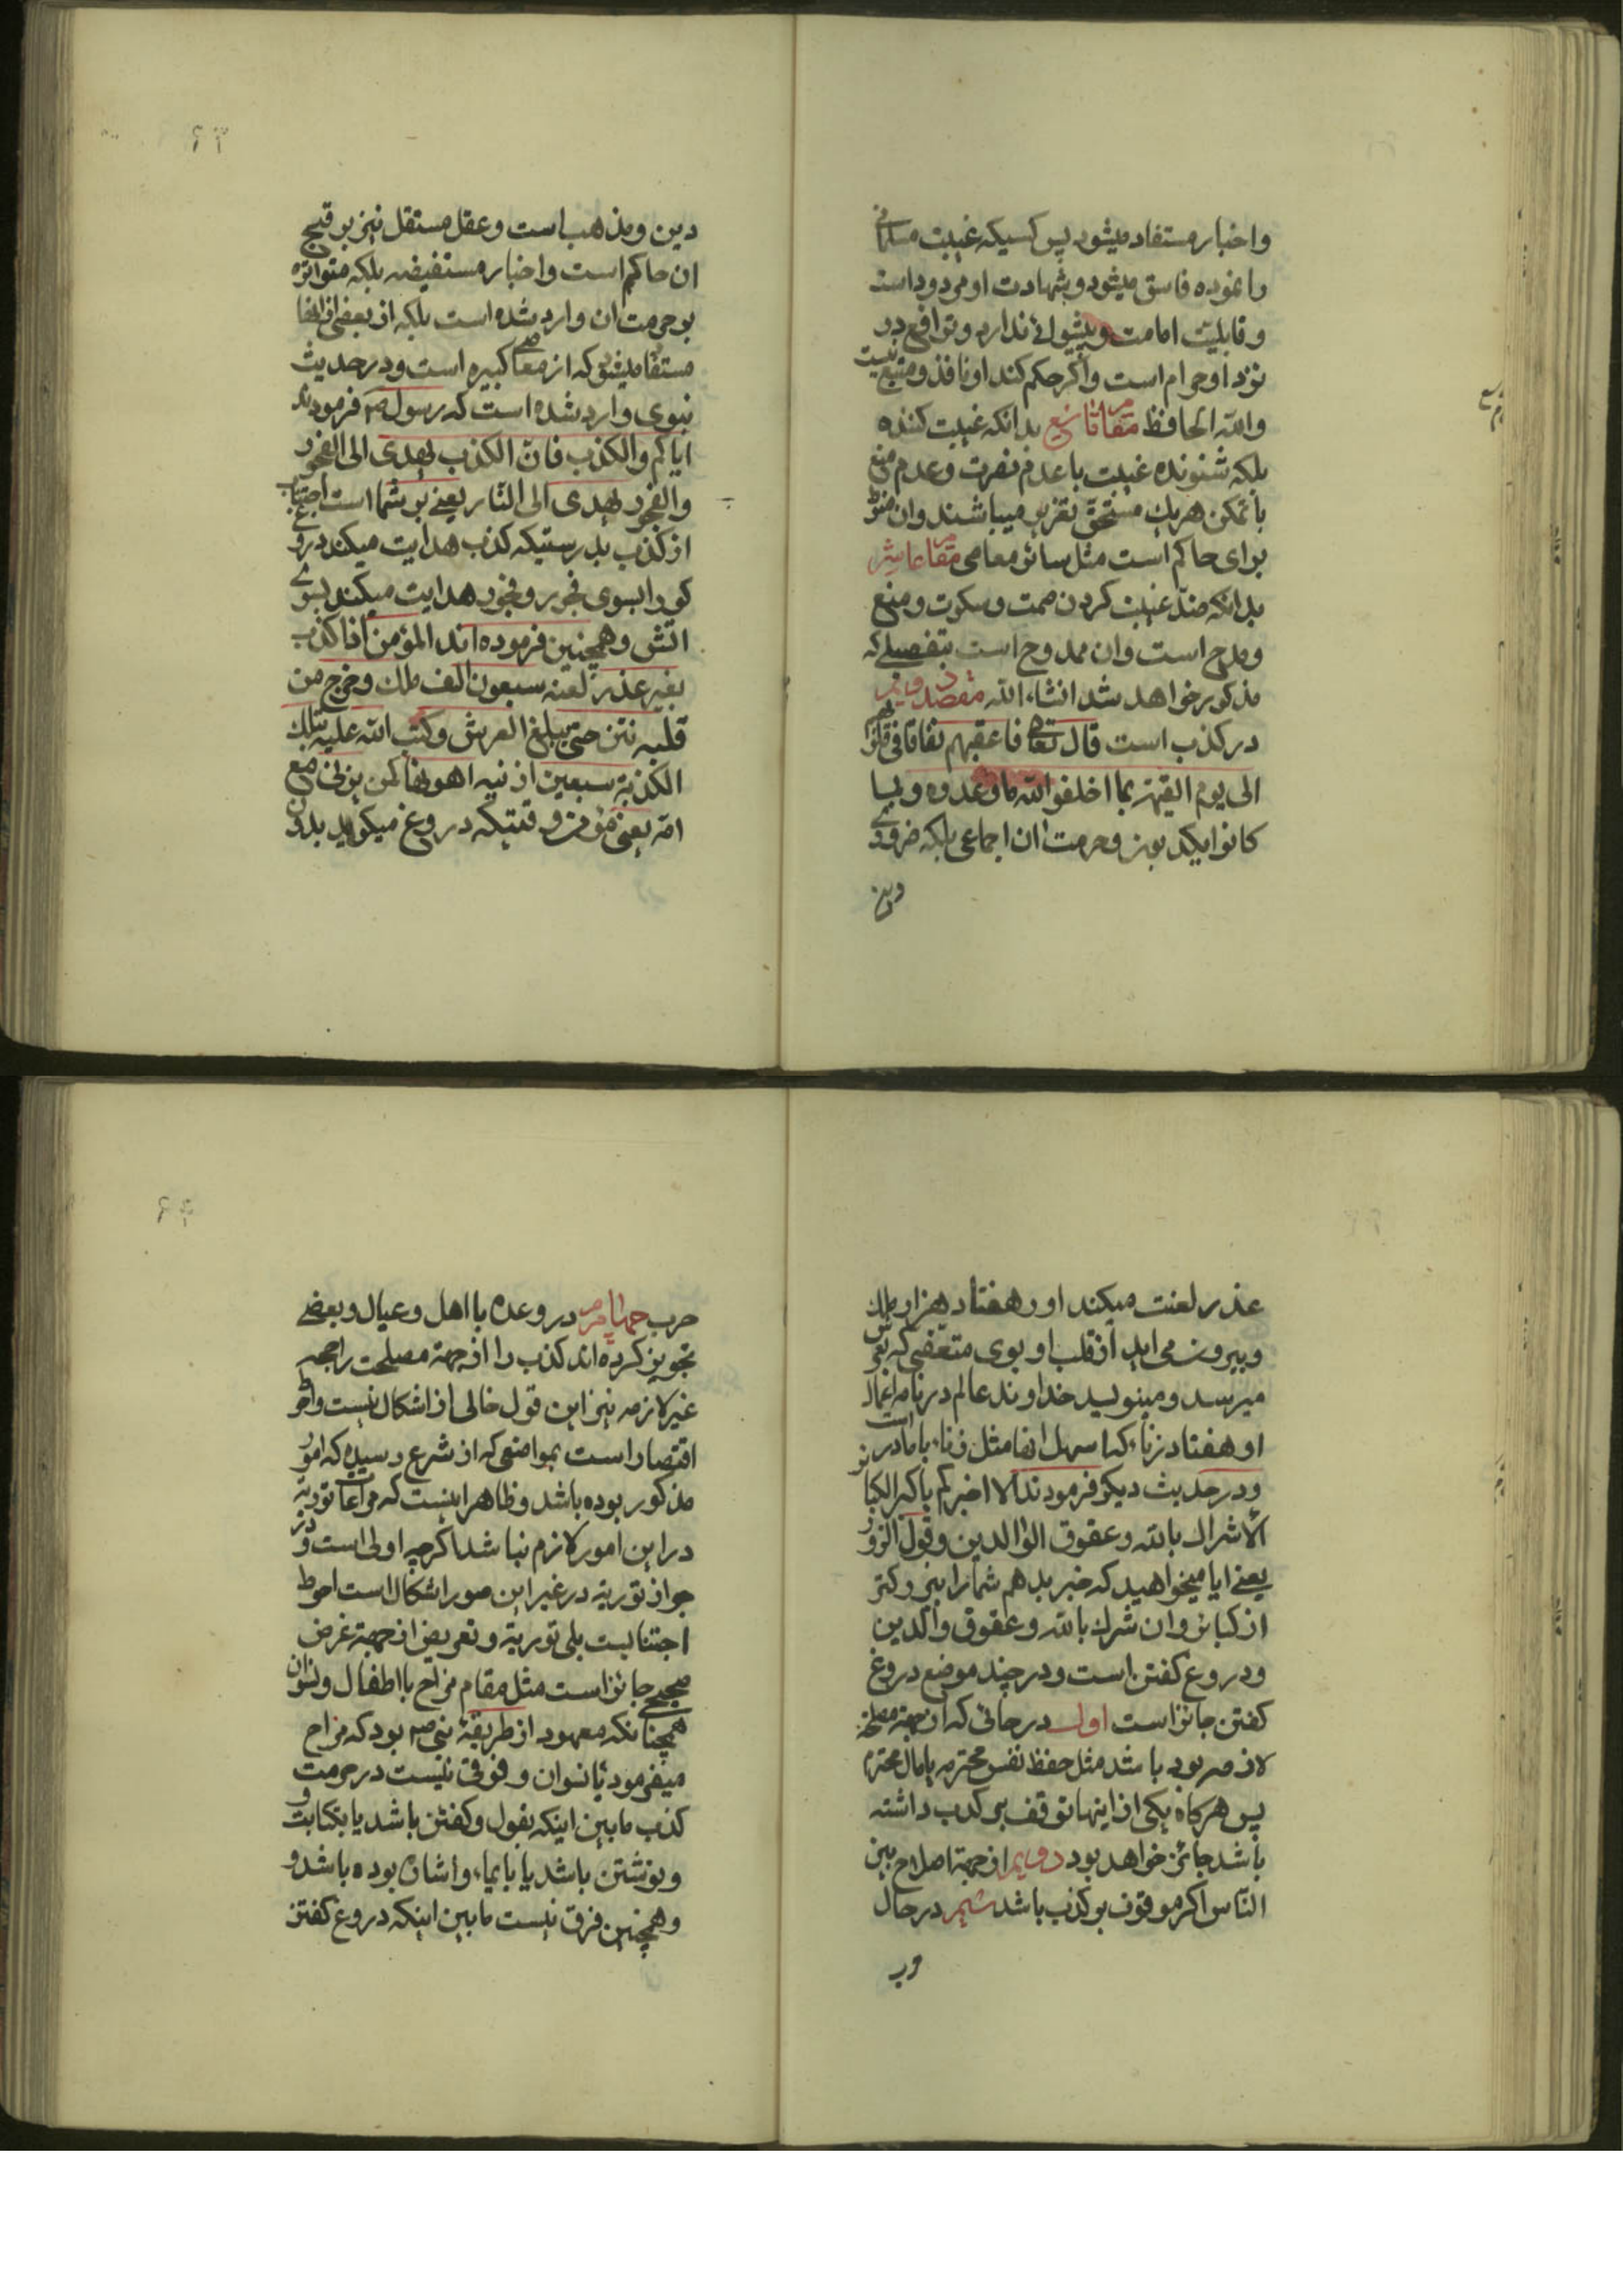 واخبار مستفاد میشود پس کسیکه غیبت مسلمانی
را نموده فاسق میشود و شهادت او مردود است
و قابلیت امامت و پیشوائی ندارد و ترافع در
نزد او حرام است و اگر حکم کند او نافذ و متبع نیست
والله الحافظ مقام تاسع بدانکه غیبت کننده
بلکه شنونده غیبت با عدم نصرت و عدم منع
با تمکن هریك مستحق تعزیر میباشند و ان منوط
برای حاکم است مثل سائر معاصی مقام عاشر
بدانکه ضد غیبت کردن صمت و سکوت و منع
و مدح است و ان ممدوح است بتفصیلے که
مذکور خواهد شد انشاء الله مقصد دویم
در کذب است قال تعالی فاعقبهم نفاقا فی قلوبهم
الی یوم القیمة بما اخلفوا الله ما وعدوه و بما
کانوا یکذبون و حرمت ان اجماعی بلکه ضروری
دین
دین و مذهب است و عقل مستقل نیز بر قبح
ان حاکم است و اخبار مستفیضه بلکه متواتره
بر حرمت ان وارد شده است بلکه از بعضی از انها
مستفاد میشود که از معاصی کبیره است و در حدیث
نبوی وارد شده است که رسول ص فرمودند
ایاکم والکذب فان الکذب یهدی الی الفجور
والفجور یهدی الی النار یعنے بر شما است اجتناب
از کذب بدرستیکه کذب هدایت میکند دروغ
کو را بسوی فجور و فجور هدایت میکند بسوی
اتش و همچنین فرموده اند المؤمن اذا کذب
بغیر عذر لعنه سبعون الف ملك و خرج من
قلبه نتن حتی یبلغ العرش و کتب الله علیه بتلك
الکذبة سبعین زنیه اهونها کمن یزنی مع
امه یعنی مؤمن وقتیکه دروغ میکوید بدون
عذر لعنت میکند او را هفتاد هزار ملك
و بیرون می اید از قلب او بوی متعفنی که بعرش
میرسد و مینویسد خداوند عالم در نامه اعمال
او هفتاد زناء که اسهل انها مثل زناء با مادر است
و در حدیث دیکر فرمودند الا اخبرکم باکبر الکبائر
الاشراك بالله و عقوق الوالدین و قول الزور
یعنے ایا میخواهید که خبر بدهم شما را ببزرکتر
از کبائر و ان شرك بالله و عقوق والدین
و دروغ کفتن است و در چند موضع دروغ
کفتن جائز است اول در حالتی که از جهة مصلحة
لازمه بوده باشد مثل حفظ نفس محترمه یا مال محترم
پس هرکاه یکی از اینها توقف بر کذب داشته
باشد جائز خواهد بود دویم از جهة اصلاح بین
الناس اکر موقوف بر کذب باشد سیم در حال
رب
حرب چهارم در وعده با اهل و عیال و بعضے
تجویز کرده اند کذب را از جهة مصلحت راجحه
غیر لازمه نیز این قول خالی از اشکال نیست و احوط
اقتصار است بمواضعی که از شرع رسیده که امور
مذکور بوده باشد و ظاهر اینست که مراعات توریة
در این امور لازم نباشد اکرچه اولی است و در
جواز توریة در غیر این صور اشکال است احوط
اجتنابست بلی توریة و تعریض از جهة غرض
صحیح جائز است مثل مقام مزاح با اطفال و نسوان
همچنانکه معهود از طریقة نبی ص بود که مزاح
میفرمود با نسوان و فرقی نیست در حرمت
کذب ما بین اینکه بقول و کفتن باشد یا بکتابت و
و نوشتن باشد یا بایماء و اشاره بوده باشد و
و همچنین فرق نیست ما بین اینکه دروغ کفتن